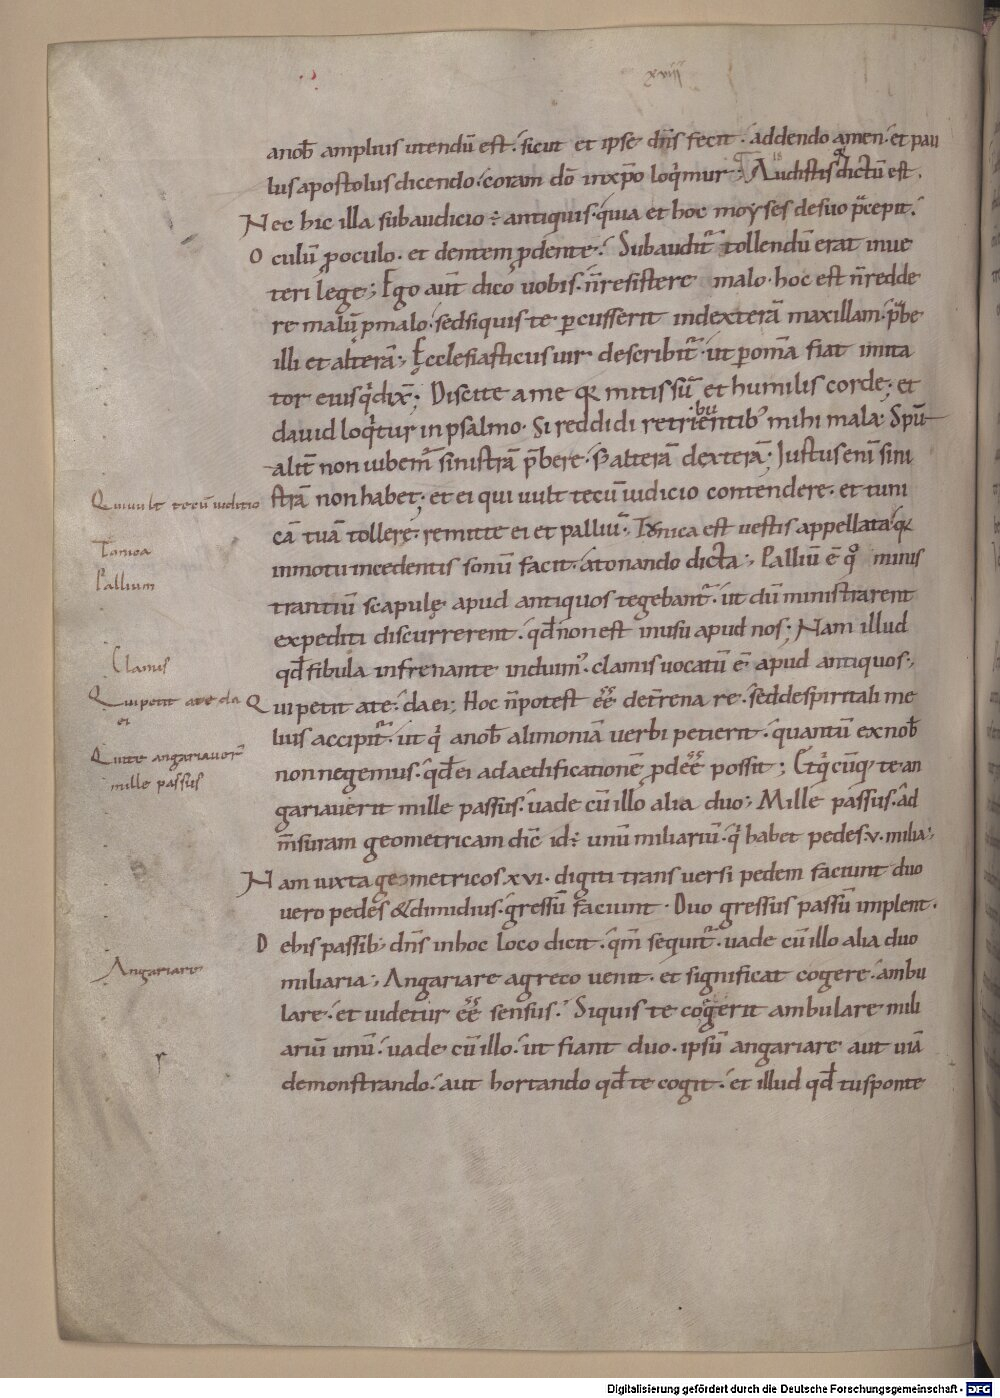 xviii
anob̄ amplius utendū est. sicut et ipse dn̄s fecit. addendo amen. et pau
lus apostolus dicendo. coram dō inxp̄o loq̄mur; Audistis q̄a dictū est.
Nec hic illa subaudicio ÷ antiquis. quia et hoc moyses desuo p̄cepit.
Oculū p̱oculo. et dentem p̱dente. Subauditͬ tollendū erat inue
teri lege; Ego aut̄ dico uobis. n̄resistere malo. hoc est n̄redde
re malū p̱malo. sedsiquis te p̱cusserit indexterā maxillam. p̄be
illi et alterā; Ęcclesiasticus uir describitͬ. ut p̱omīa fiat imita
tor eius q̇dix̄; Discite a me quia mitis sū et humilis corde; et
dauid loq̇tur in psalmo. Si reddidi retribuentib; mihi mala; Spū
alit̄ non iubemͬ sinistrā p̄bere. s; alterā dexterā; Iustus enī sini
strā non habet; et ei qui uult tecū iudicio contendere. et tuni
Qui uult tecū iuditio
cā tuā tollere. remitte ei et palliū. Tonica est uestis appellata. quia
Tonica
inmotu incedentis sonū facit. a tonando dicta; Palliū ē qͦ minis
Pallium
trantiū scapulę apud antiquos tegebantͬ. ut dū ministrarent
expediti discurrerent. qd̄ non est inusu apud nos; Nam illud
Clamis
qd̄ fibula infrenante induimꝰ. clamis uocatū ē apud antiquos;
Qui petit ate da
ei
Qui petit ate. da ei; Hoc n̄potest eē det̄rena re. sed despiritali me
lius accipitͬ. ut q̇ anob̄ alimoniā uerbi petierit. quantū exnob̄
Qui te angariauer̄
mille passus
non negemus. qd̄ ei adaedificationē p̱deē possit; Et q̇cūq; te an
gariauerit mille passus. uade cū illo alia duo; Mille passus. ad
m̄suram geometricam dic̄ id÷ unū miliariū. q̇ habet pedes .v. milia;
Nam iuxta geometricos xvi. digiti transuersi pedem faciunt duo
uero pedes &dimidius. gressū faciunt. Duo gressus passū implent.
Debis passib; dn̄s inhoc loco dicit. qm̄ sequitͬ. uade cū illo alia duo
Angariare
miliaria; Angariare agreco uenit. et significat cogere. ambu
lare. et uidetur eē sensus. Siquis te cogerit ambulare mili
ariū unū. uade cū illo. ut fiant duo. ipsū angariare aut uiā
demonstrando. aut hortando qd̄ te cogit. et illud qd̄ tu sponte
Digitalisierung gefördert durch die Deutsche Forschungsgemeinschaft - DFG